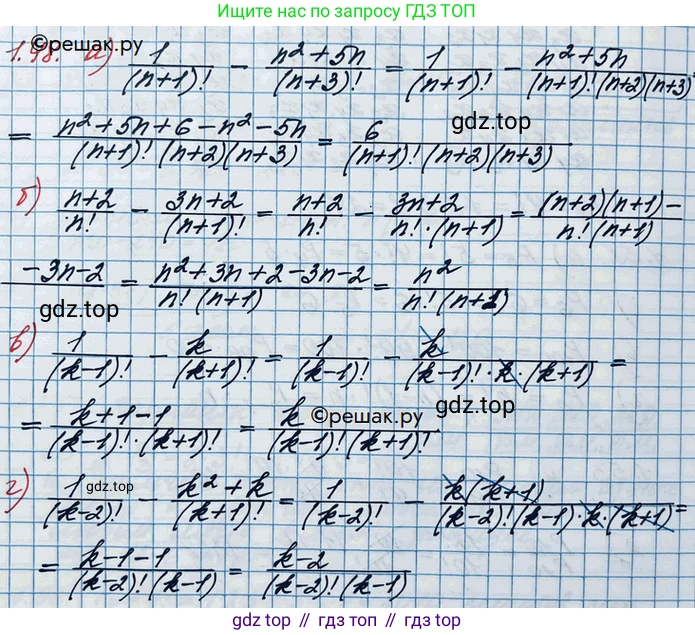 Ищите нас по запросу ГДЗ ТОП
©решак.ру
1.48. а) 1/(n+1)! - (n²+5n)/(n+3)! = 1/(n+1)! - (n²+5n)/((n+1)!(n+2)(n+3)) =
= (n²+5n+6-n²-5n)/((n+1)!(n+2)(n+3)) = 6/((n+1)!(n+2)(n+3))
gdz.top
б) (n+2)/n! - (3n+2)/(n+1)! = (n+2)/n! - (3n+2)/(n!·(n+1)) = ((n+2)(n+1)-)/(n!(n+1))
-3n-2 = (n²+3n+2-3n-2)/(n!(n+1)) = n²/(n!(n+1))
gdz.top
в) 1/(k-1)! - k/(k+1)! = 1/(k-1)! - k/((k-1)!·k·(k+1)) =
gdz.top
= (k+1-1)/((k-1)!·(k+1)!) = k/((k-1)!(k+1)!)
©решак.ру
г) 1/(k-2)! - (k²+k)/(k+1)! = 1/(k-2)! - k(k+1)/((k-2)!(k-1)·k·(k+1)) =
gdz.top
= (k-1-1)/((k-2)!(k-1)) = (k-2)/((k-2)!(k-1))
gdz.top // gdz.top // gdz.top // gdz.top